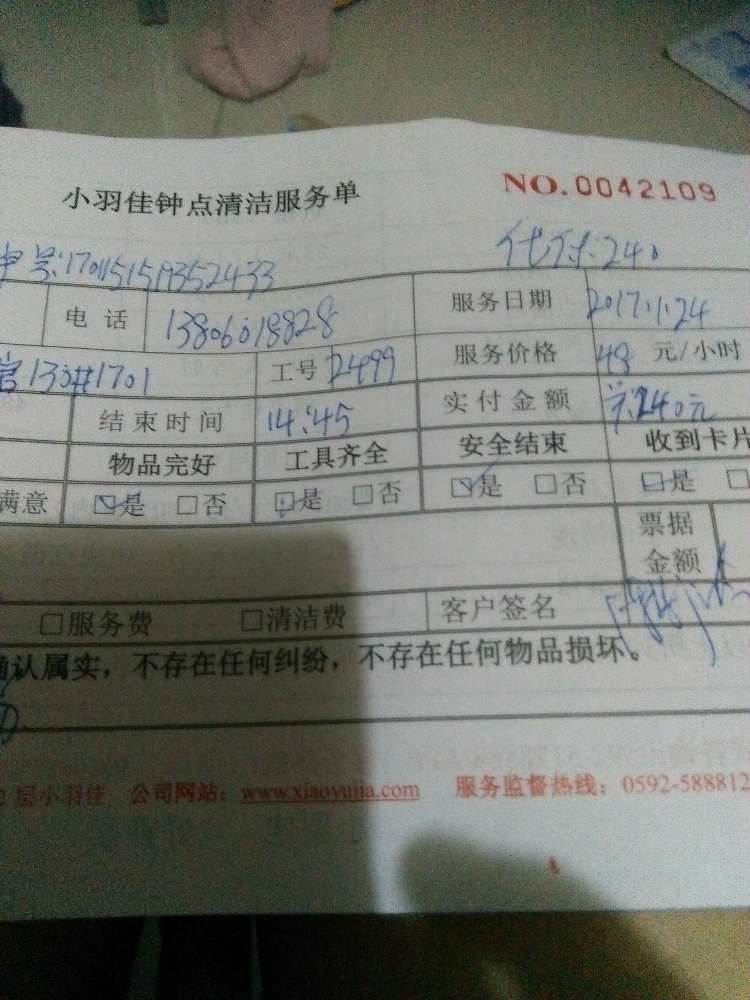 小羽佳钟点清洁服务单 NO.0042109
单号:170115151935 2433 代付:240
电话 13806018828 服务日期 2017.1.24
130#1701 工号 2499 服务价格 48 元/小时
结束时间 14:45 实付金额 240元
物品完好 工具齐全 安全结束 收到卡片
满意 ☑是 □否 ☑是 □否 ☑是 □否 □是 □
票据金额
□服务费 □清洁费 客户签名
确认属实，不存在任何纠纷，不存在任何物品损坏。
层小羽佳 公司网站：www.xiaoyujia.com 服务监督热线：0592-588812